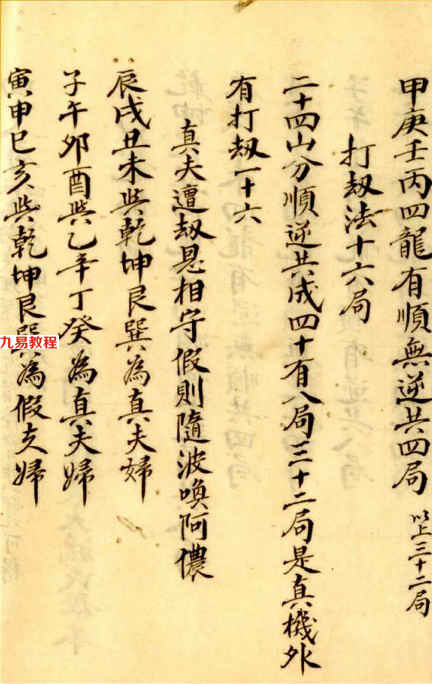 甲庚壬丙四龍有順無逆共四局 以上三十二局
打刼法十六局
二十四山分順逆共成四十有八局三十二局是真機外
有打刼一十六
真夫遭刼思相守假則隨波喚阿儂
辰戌丑未與乾坤艮巽為真夫婦
子午卯酉與乙辛丁癸為真夫婦
寅申巳亥與乾坤艮巽為假夫婦
九易教程